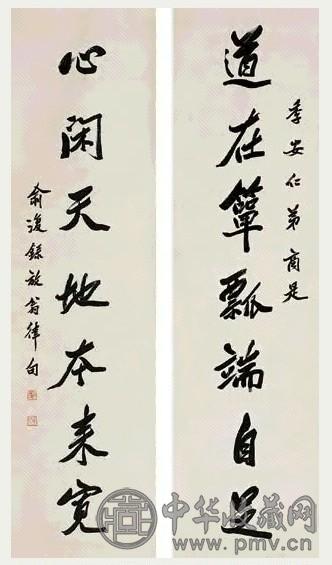 季安仁弟商是
道在簞瓢端自足
心閑天地本来寬
俞復録放翁律句
中华收藏网
www.pmv.cn